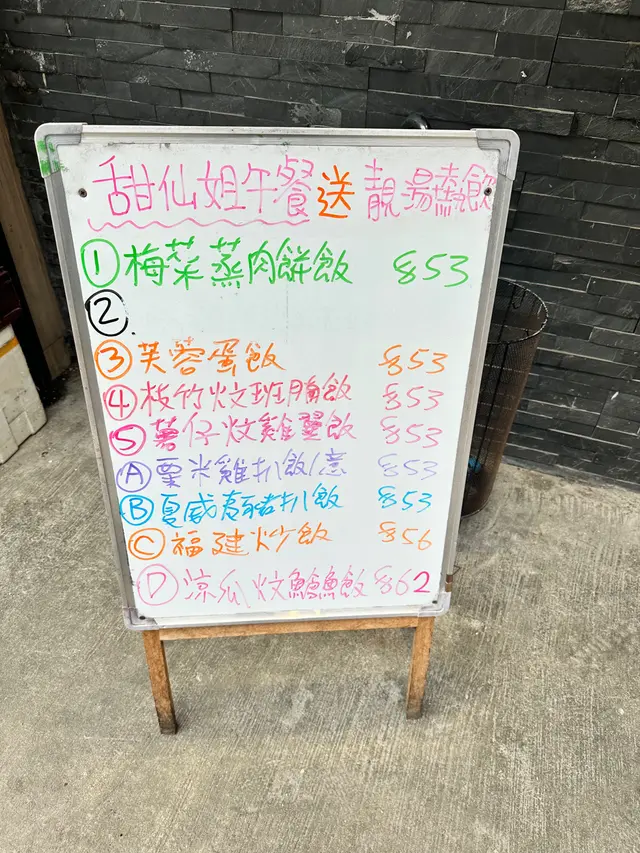 甜仙姐午餐送靚湯熱飲
① 梅菜蒸肉餅飯 $53
②.
③ 芙蓉蛋飯 $53
④ 枝竹炆班腩飯 $53
⑤ 薯仔炆雞翼飯 $53
Ⓐ 粟米雞扒飯/意 $53
Ⓑ 夏威夷豬扒飯 $53
Ⓒ 福建炒飯 $56
Ⓓ 涼瓜炆鱔飯 $62